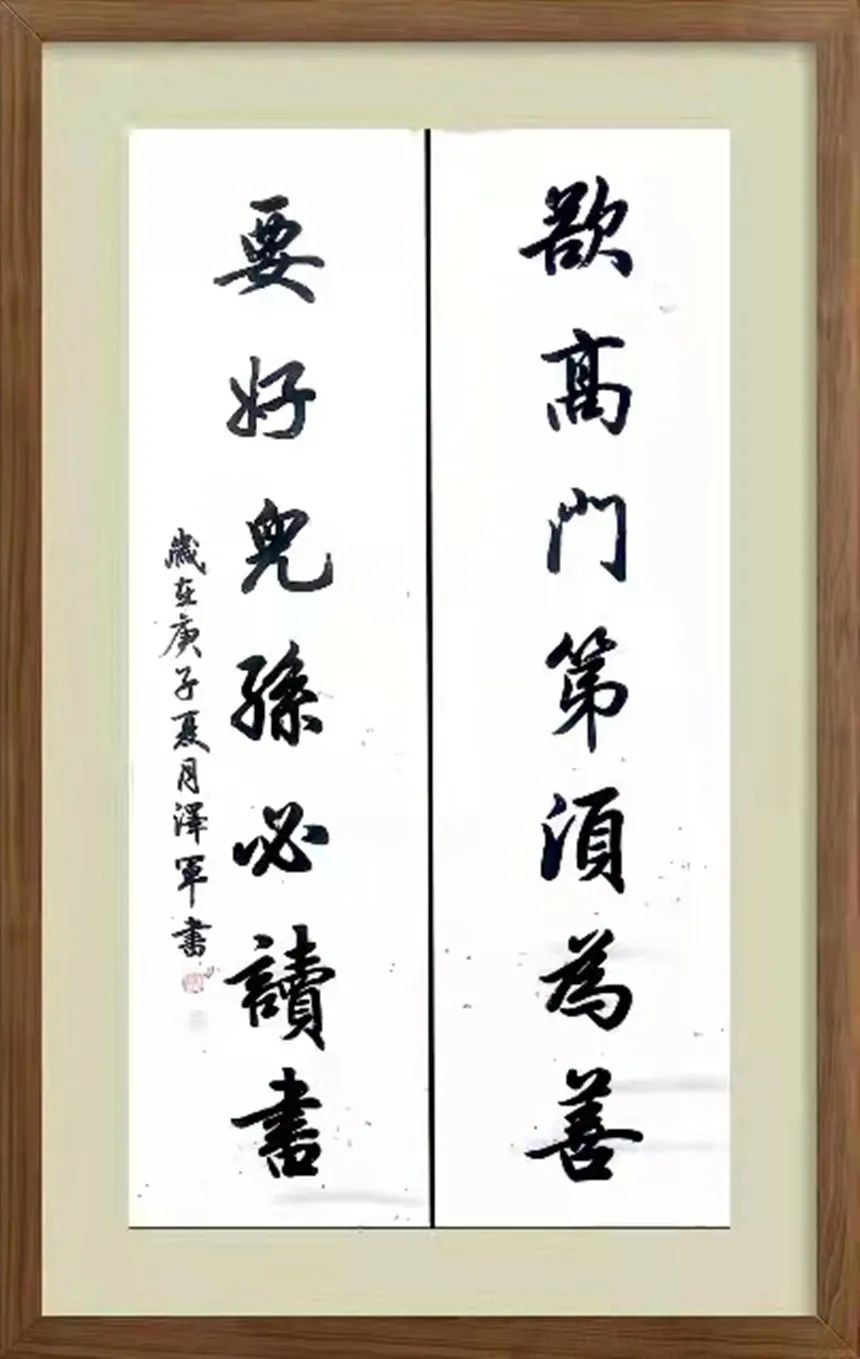 欲高門第須為善
要好兒孫必讀書
歲在庚子夏月澤軍書